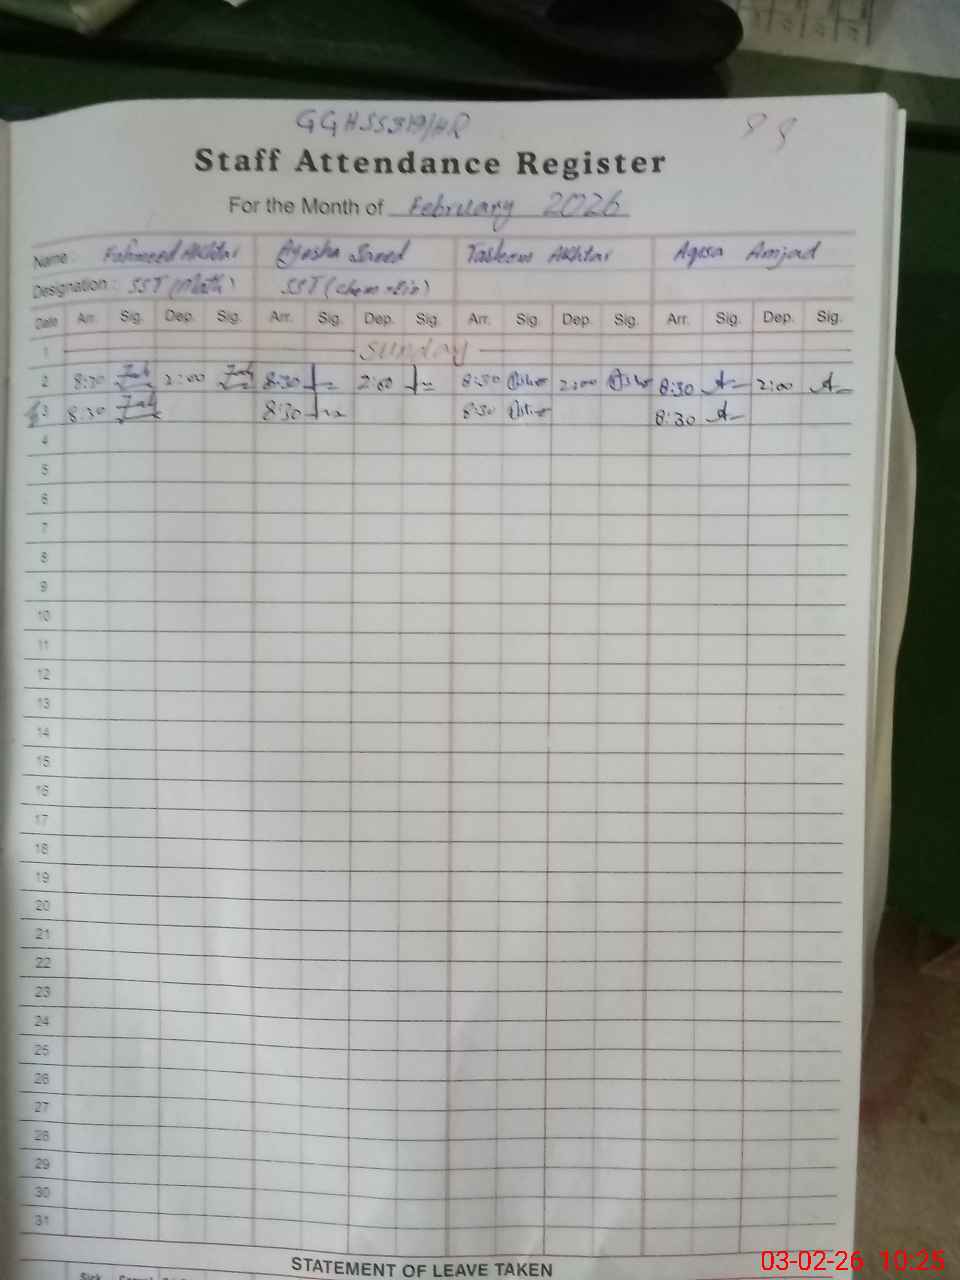 GGHSS319/HR
Staff Attendance Register
For the Month of February 2026
Name : Fahmeed Akhtar Ayesha Saeed Tasleem Akhtar Aqsa Amjad
Designation : SST (Math) SST (Chem-Bio)
Date Arr. Sig. Dep. Sig. Arr. Sig. Dep. Sig. Arr. Sig. Dep. Sig. Arr. Sig. Dep. Sig.
1 Sunday
2 8:30 2:00 8:30 2:00 8:30 2:00 8:30 2:00
3 8:30 8:30 8:30 8:30
4
5
6
7
8
9
10
11
12
13
14
15
16
17
18
19
20
21
22
23
24
25
26
27
28
29
30
31
STATEMENT OF LEAVE TAKEN
Sick
03-02-26 10:25